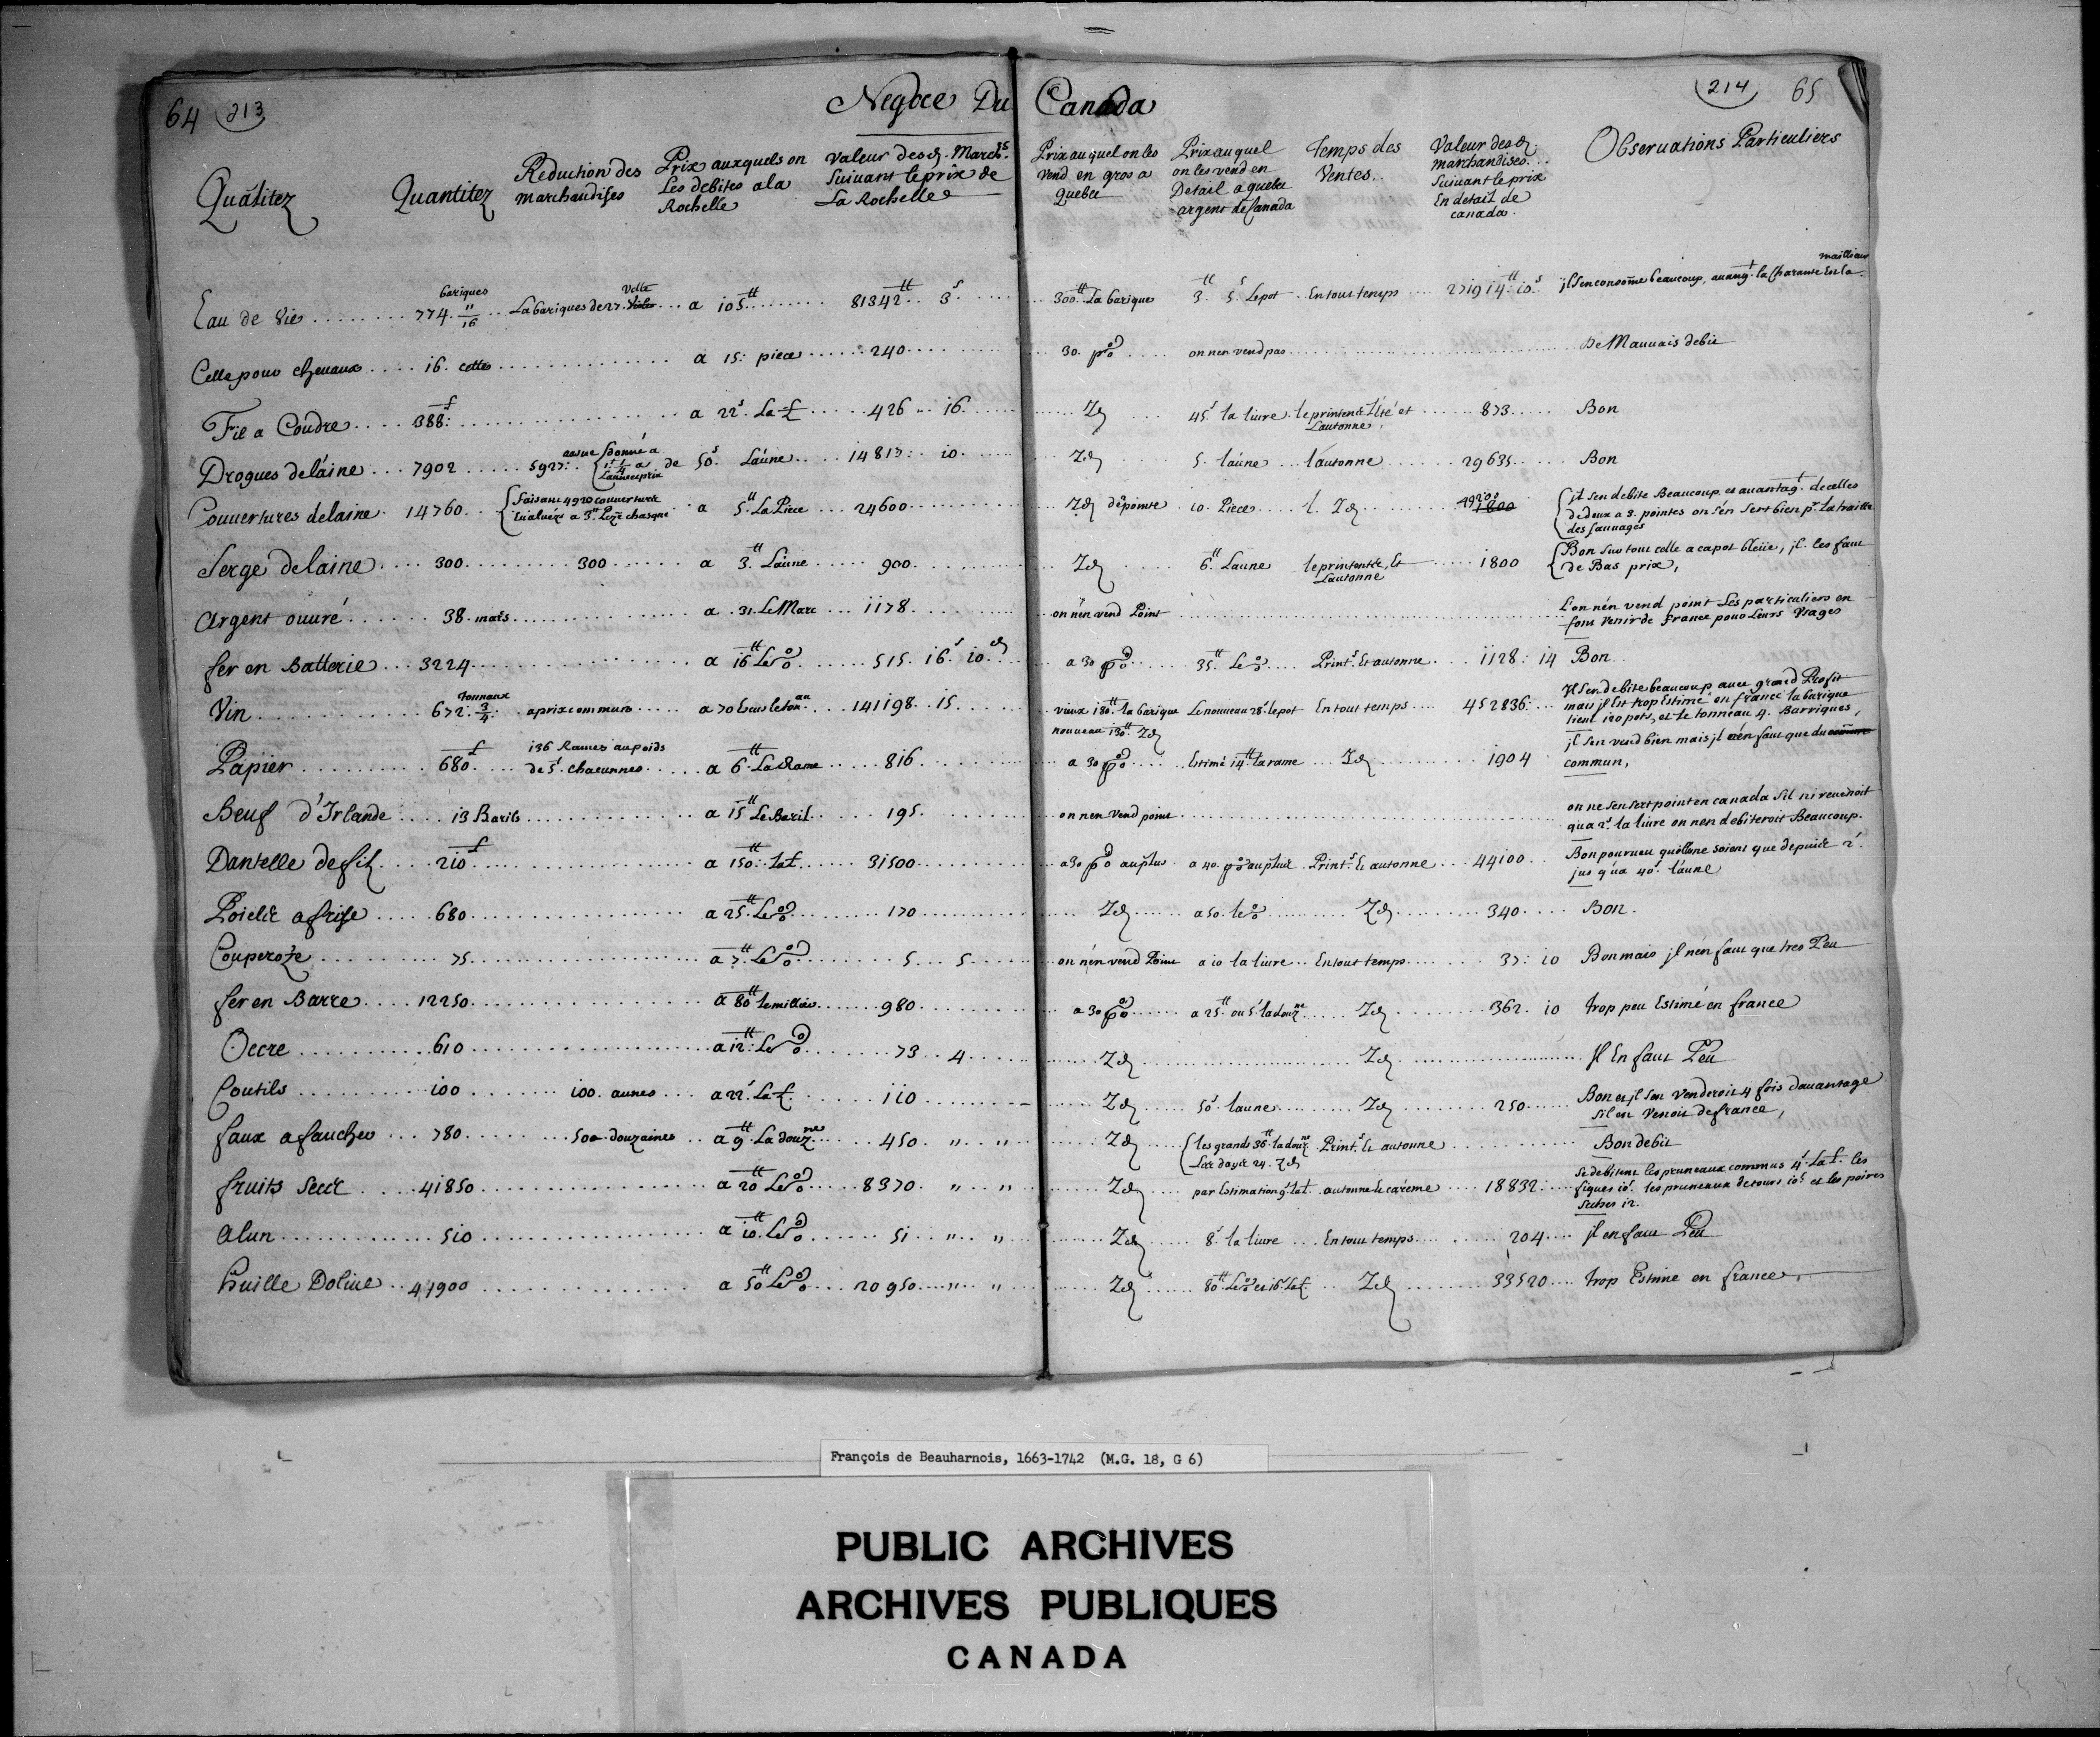 64 213
Negoce Du Canada
214 65
Qualitez
Quantitez
Reduction des marchandises
Prix auxquels on Les debites a la Rochelle
Valeur desd. March.s Suivant le prix de La Rochelle
Prix auquel on les vend en gros a Quebec
Prix auquel on les vend en Detail a quebec argent de Canada
Temps des Ventes
Valeur desd. marchandises Suivant le prix En detail de canada
Observations Particuliers
Eau de Vie 774 11/16 bariques La bariques de 27 Velte a 105 81342 3 300 La barique 3 5 Le pot En tout temps 271914 10 jl s'en consome beaucoup, la Charante
Celle pour chevaux 16 celles a 15 piece 240 30 p% on nen vend pas De Mauvais debit
Fil a Coudre 388 a 22s La £ 426 16 Id 45s la livre le printemps L'été et Lautonne 873 Bon
Drogues de laine 7902 5927 de 50s Laune 14817 10 Id 5 laune lautonne 29635 Bon
Couvertures de laine 14760 faisant 4920 couvertures Evaluéz a 3 chasque a 5 La Piece 24600 Id de pointe 10 Piece 49205 jl sen debite Beaucoup, et avantag. de celles de deux a 3 pointes on sen sert bien pr. la traitte des Sauvages
Serge de laine 300 300 a 3 Laune 900 Id 6 Laune le printemps, Et Lautonne 1800 Bon Sur tout celle a capot bleüe, jl les faut de Bas prix,
Argent ouvré 38 marcs a 31 Le Marc 1178 on nén vend Point L'on nén vend point Les particuliers en font Venir de france pour Leurs Usages
fer en Batterie 3224 a 16 Le % 515 16s 10d a 30 p% 35 Le % Print.s Et autonne 1128 14 Bon
Vin 672 3/4 tonnaux a prix commun a 70 Ecus le ton.au 141198 15 vieux 180 la barique nouveau 130 Id Le nouveau 28s le pot En tout temps 452836 Jl sen debite beaucoup avec grand Profit mais jl Est trop Estimé en france la barique tient 120 pots, et Le tonneau 4 Barriques,
Papier 680 136 Rames au poids de 5£ chacunnes a 6 La Rame 816 a 30 p% Estimé 14 la rame Id 1904 jl sen vend bien mais jl nén faut que du commun,
Beuf d'Irlande 13 Barils a 15 Le Baril 195 on nen vend point on ne sen sert point en canada Sil ni revenoit qua 2s la livre on nen debiteroit Beaucoup.
Dantelle de fil 210 a 150 la £ 31500 a 30 p% au plus a 40 p% au plus Print.s Et autonne 44100 Bon pourveu quelle ne soient que depuis 2s jus qu'a 40s l'aune
Poiele a frise 680 a 25 Le % 170 Id a 50 le % Id 340 Bon.
Couperoze 75 a 7 Le % 5 5 on nén vend Point a 10 la livre En tout temps 37 10 Bon mais jl nen faut que tres Peu
fer en Barre 12250 a 80 le millier 980 a 30 p% a 25 ou 5s la douz.ne Id 362 10 trop peu Estimé en france
Occre 610 a 12 Le % 73 4 Id Id Jl En faut Peu
Coutils 100 100 aunes a 22s La £ 110 Id 50s laune Id 250 Bon et jl sen Venderoit 4 fois davantage Sil en Venoit de france,
faux a faucher 780 500 douzaines a 9 La douz.ne 450 " " Id les grands 36 la douz.ne 24 Id Print.s Et autonne Bon debit
fruits Secs 41850 a 20 Le % 8370 " " Id par Estimation 9s la £ autonne Et caréme 18832 Se debitent les pruneaux commus 4s La £ les figues 10s les pruneaux de tours 10s et les poires Seiches 12.
Alun 510 a 10 Le % 51 " " Id 8s la livre En tout temps 204 jl en faut Peu
huille Dolive 41900 a 50 Le % 20950 " " Id 80 Le % et 16s La £ Id 33520 trop Estimé en france,
François de Beauharnois, 1663-1742 (M.G. 18, G 6)
PUBLIC ARCHIVES
ARCHIVES PUBLIQUES
CANADA